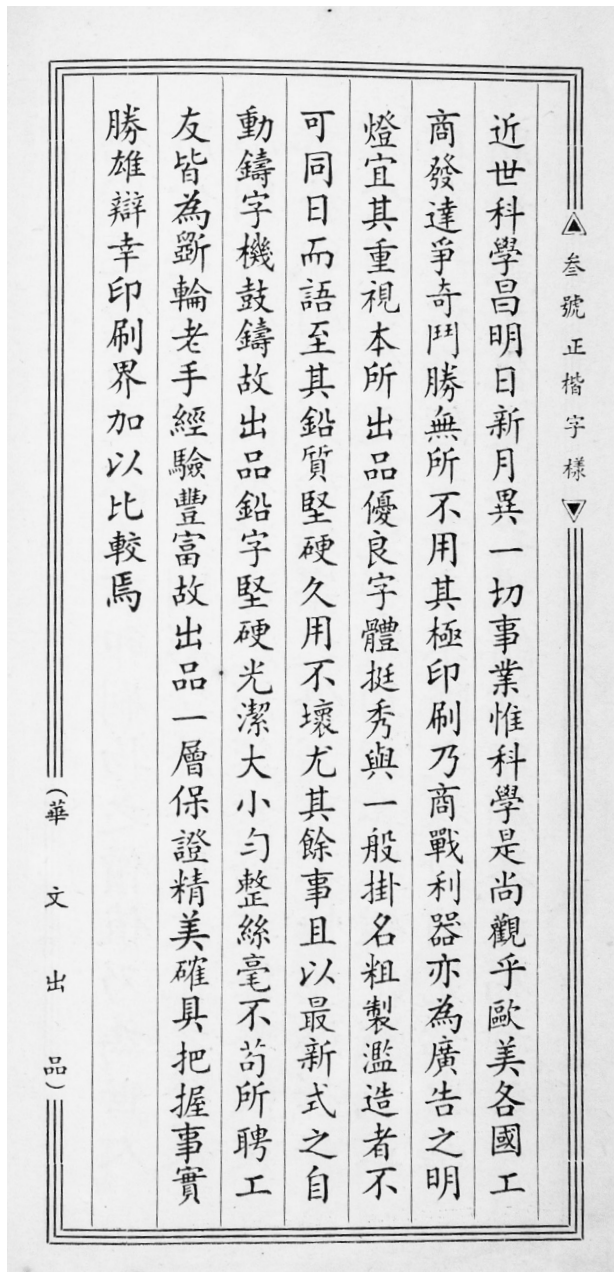 叁號正楷字樣
近世科學昌明日新月異一切事業惟科學是尚觀乎歐美各國工
商發達爭奇鬥勝無所不用其極印刷乃商戰利器亦為廣告之明
燈宜其重視本所出品優良字體挺秀與一般掛名粗製濫造者不
可同日而語至其鉛質堅硬久用不壞尤其餘事且以最新式之自
動鑄字機鼓鑄故出品鉛字堅硬光潔大小勻整絲毫不苟所聘工
友皆為斲輪老手經驗豐富故出品一層保證精美確具把握事實
勝雄辯幸印刷界加以比較焉
（華文出品）